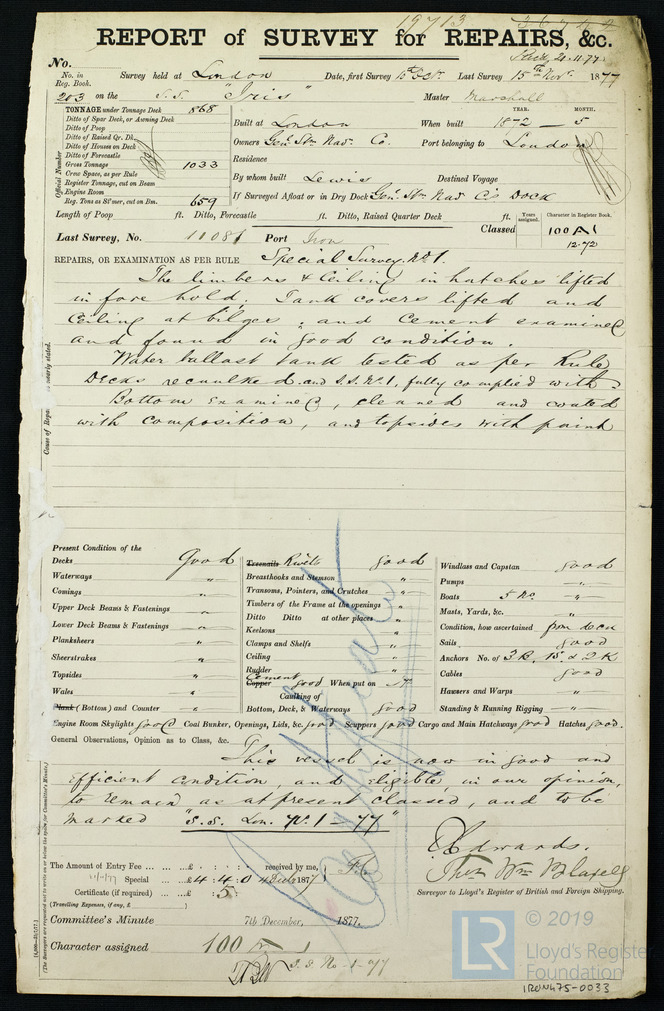 19713
REPORT of SURVEY for REPAIRS, &c.
No.
No. in Reg. Book.
Survey held at London Date, first Survey Last Survey 15th Novr. 1877
203 on the S.S. "Iris" Master Marshall
TONNAGE under Tonnage Deck 868
Ditto of Spar Deck, or Awning Deck
Ditto of Poop
Ditto of Raised Qr. Dk.
Ditto of Houses on Deck
Ditto of Forecastle
Gross Tonnage 1033
Crew Space, as per Rule
Register Tonnage, cut on Beam
Engine Room
Reg. Tons as St'mer, cut on Bm. 659
Official Number
YEAR. MONTH.
Built at London When built 1872 — 5
Owners Genl. Stm. Nav. Co. Port belonging to London
Residence
By whom built Lewis Destined Voyage
If Surveyed Afloat or in Dry Dock Genl. Stm Nav Co's Dock
Length of Poop ft. Ditto, Forecastle ft. Ditto, Raised Quarter Deck ft.
Years assigned. Character in Register Book.
Last Survey, No. 11081 Port Iron Classed 100A1
12-72
REPAIRS, OR EXAMINATION AS PER RULE Special Survey No. 1.
The limbers & Ceiling in hatches lifted
in fore hold. Tank covers lifted and
Ceiling at bilges, and Cement examined
and found in good condition.
Water ballast tank tested as per Rule
Decks recaulked and S.S. No. 1, fully complied with
Bottom Examined, cleaned and coated
with composition, and topsides with paint
Present Condition of the
Decks Good
Waterways "
Comings "
Upper Deck Beams & Fastenings "
Lower Deck Beams & Fastenings "
Planksheers "
Sheerstrakes "
Topsides "
Wales "
Plank (Bottom) and Counter "
Treenails Rivets good
Breasthooks and Stemson "
Transoms, Pointers, and Crutches "
Timbers of the Frame at the openings "
Ditto Ditto at other places "
Keelsons "
Clamps and Shelfs "
Ceiling "
Rudder "
Cement
Copper good When put on
Caulking of
Bottom, Deck, & Waterways good
Windlass and Capstan good
Pumps "
Boats 5 No. "
Masts, Yards, &c. "
Condition, how ascertained from deck
Sails good
Anchors No. of 3 B, 1 S & 2 K
Cables good
Hawsers and Warps "
Standing & Running Rigging "
Engine Room Skylights good Coal Bunker, Openings, Lids, &c. good Scuppers good Cargo and Main Hatchways good Hatches good.
General Observations, Opinion as to Class, &c.
This vessel is now in good and
efficient condition, and eligible, in our opinion,
to remain as at present classed, and to be
marked "S.S. Lon. No. 1 - 77"
The Amount of Entry Fee ... ... £ : : received by me,
Special ... £ 4 : 4 : 0 1877
Certificate (if required) ... £ : 5 :
(Travelling Expenses, if any, £ )
Surveyor to Lloyd's Register of British and Foreign Shipping.
Committee's Minute 7th December, 1877.
Character assigned 100 A 1
S.S. No-1-77
© 2019
LR
Lloyd's Register
Foundation
IRON475-0033